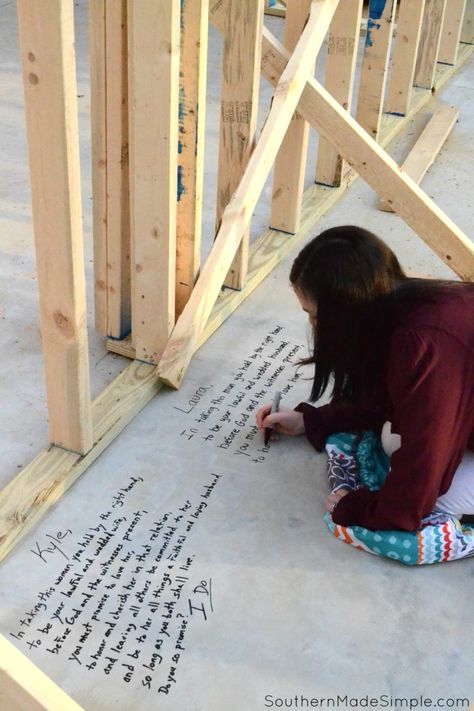 Laura,
In taking this man you hold by the right hand
to be your lawful and wedded husband,
before God and the witnesses present,
you must
to ho
Kyle,
In taking this woman you hold by the right hand,
to be your lawful and wedded wife,
before God and the witnesses present,
you must promise to love her,
to honor and cherish her in that relation,
and leaving all others be committed to her
and be to her all things a faithful and loving husband
so long as you both shall live.
Do you so promise?
I Do
SouthernMadeSimple.com